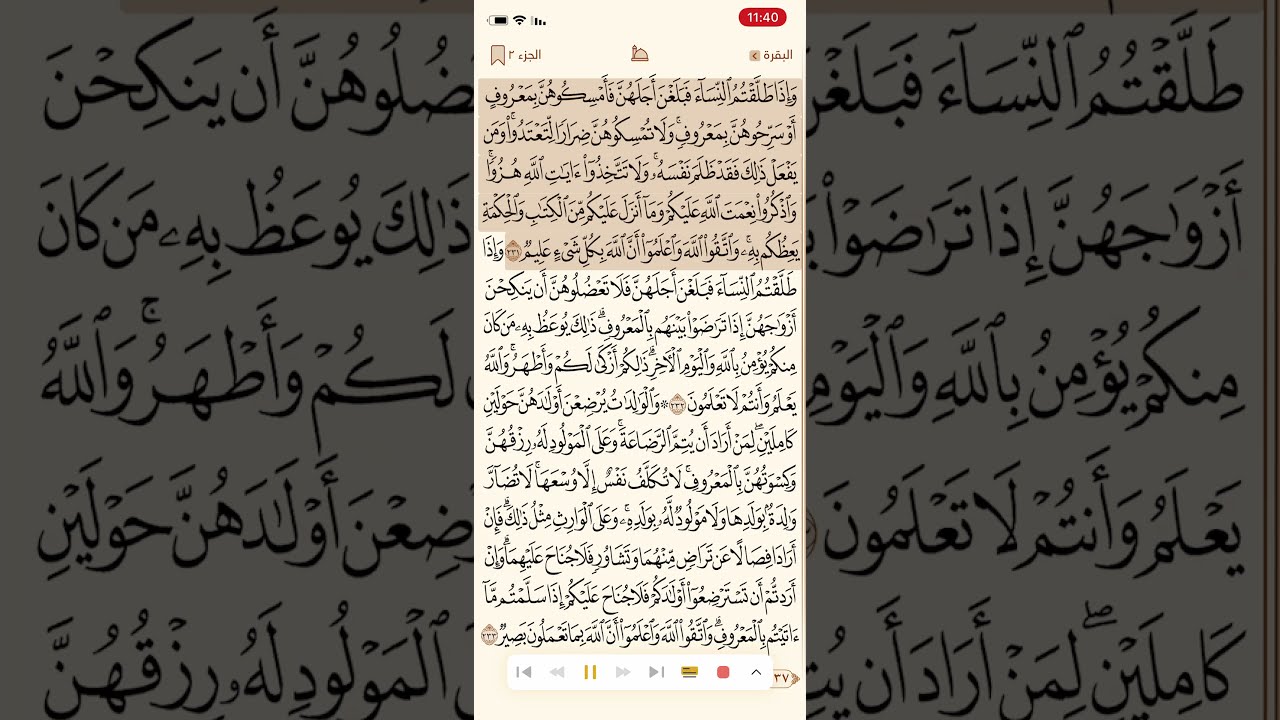 11:40
البقرة
الجزء ٢
وَإِذَا طَلَّقْتُمُ ٱلنِّسَآءَ فَبَلَغْنَ أَجَلَهُنَّ فَأَمْسِكُوهُنَّ بِمَعْرُوفٍ
أَوْ سَرِّحُوهُنَّ بِمَعْرُوفٍۚ وَلَا تُمْسِكُوهُنَّ ضِرَارًا لِّتَعْتَدُوا۟ۚ وَمَن
يَفْعَلْ ذَٰلِكَ فَقَدْ ظَلَمَ نَفْسَهُۥۚ وَلَا تَتَّخِذُوٓا۟ ءَايَٰتِ ٱللَّهِ هُزُوًاۚ
وَٱذْكُرُوا۟ نِعْمَتَ ٱللَّهِ عَلَيْكُمْ وَمَآ أَنزَلَ عَلَيْكُم مِّنَ ٱلْكِتَٰبِ وَٱلْحِكْمَةِ
يَعِظُكُم بِهِۦۚ وَٱتَّقُوا۟ ٱللَّهَ وَٱعْلَمُوٓا۟ أَنَّ ٱللَّهَ بِكُلِّ شَىْءٍ عَلِيمٌ ٢٣١ وَإِذَا
طَلَّقْتُمُ ٱلنِّسَآءَ فَبَلَغْنَ أَجَلَهُنَّ فَلَا تَعْضُلُوهُنَّ أَن يَنكِحْنَ
أَزْوَٰجَهُنَّ إِذَا تَرَٰضَوْا۟ بَيْنَهُم بِٱلْمَعْرُوفِۗ ذَٰلِكَ يُوعَظُ بِهِۦ مَن كَانَ
مِنكُمْ يُؤْمِنُ بِٱللَّهِ وَٱلْيَوْمِ ٱلْءَاخِرِۗ ذَٰلِكُمْ أَزْكَىٰ لَكُمْ وَأَطْهَرُۚ وَٱللَّهُ
يَعْلَمُ وَأَنتُمْ لَا تَعْلَمُونَ ٢٣٢ ۞ وَٱلْوَٰلِدَٰتُ يُرْضِعْنَ أَوْلَٰدَهُنَّ حَوْلَيْنِ
كَامِلَيْنِۖ لِمَنْ أَرَادَ أَن يُتِمَّ ٱلرَّضَاعَةَۚ وَعَلَى ٱلْمَوْلُودِ لَهُۥ رِزْقُهُنَّ
وَكِسْوَتُهُنَّ بِٱلْمَعْرُوفِۚ لَا تُكَلَّفُ نَفْسٌ إِلَّا وُسْعَهَاۚ لَا تُضَآرَّ
وَٰلِدَةٌۢ بِوَلَدِهَا وَلَا مَوْلُودٌ لَّهُۥ بِوَلَدِهِۦۚ وَعَلَى ٱلْوَارِثِ مِثْلُ ذَٰلِكَۗ فَإِنْ
أَرَادَا فِصَالًا عَن تَرَاضٍ مِّنْهُمَا وَتَشَاوُرٍ فَلَا جُنَاحَ عَلَيْهِمَاۗ وَإِنْ
أَرَدتُّمْ أَن تَسْتَرْضِعُوٓا۟ أَوْلَٰدَكُمْ فَلَا جُنَاحَ عَلَيْكُمْ إِذَا سَلَّمْتُم مَّآ
ءَاتَيْتُم بِٱلْمَعْرُوفِۗ وَٱتَّقُوا۟ ٱللَّهَ وَٱعْلَمُوٓا۟ أَنَّ ٱللَّهَ بِمَا تَعْمَلُونَ بَصِيرٌ ٢٣٣
٣٧